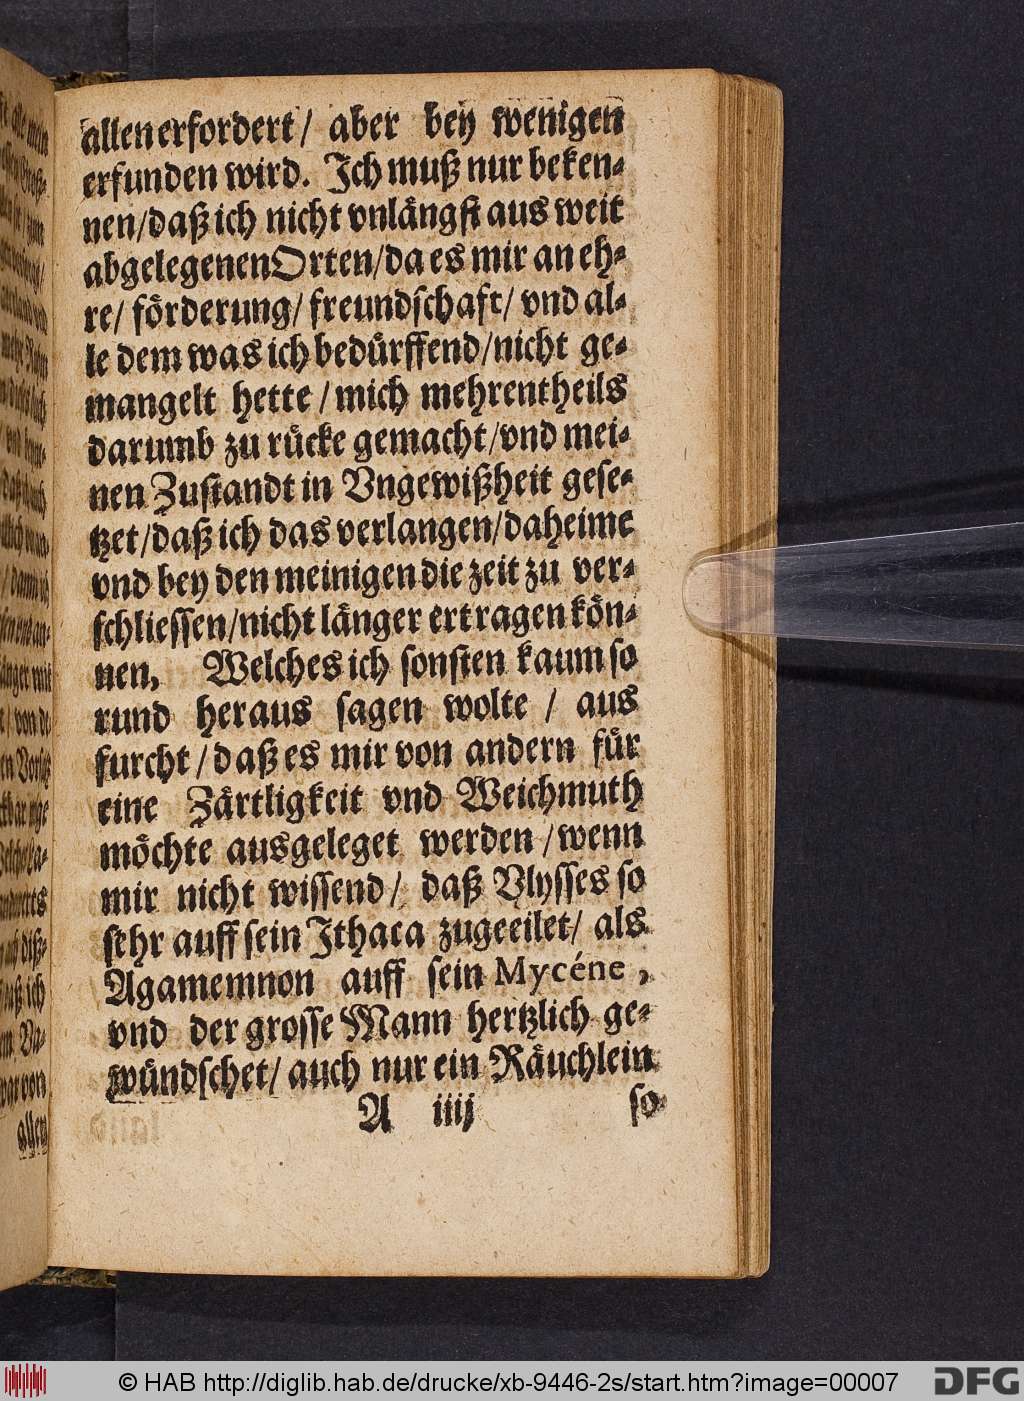 allen erfordert/ aber bey wenigen
erfunden wird. Ich muß nur beken-
nen/daß ich nicht vnlängſt aus weit
abgelegenen Orten/da es mir an eh-
re/ förderung/ freundſchaft/ vnd al-
le dem was ich bedürffend/nicht ge-
mangelt hette / mich mehrentheils
darumb zu rücke gemacht/vnd mei-
nen Zuſtandt in Vngewißheit geſe-
tzet/daß ich das verlangen/daheime
vnd bey den meinigen die zeit zu ver-
ſchlieſſen/nicht länger ertragen kön-
nen, Welches ich ſonſten kaum ſo
rund heraus ſagen wolte / aus
furcht/daß es mir von andern für
eine Zärtligkeit vnd Weichmuth
möchte ausgeleget werden /wenn
mir nicht wiſſend/ daß Vlyſſes ſo
ſehr auff ſein Ithaca zugeeilet/ als
Agamemnon auff ſein Mycéne,
vnd der groſſe Mann hertzlich ge-
wündſchet/ auch nur ein Räuchlein
A iiij ſo
© HAB http://diglib.hab.de/drucke/xb-9446-2s/start.htm?image=00007
DFG